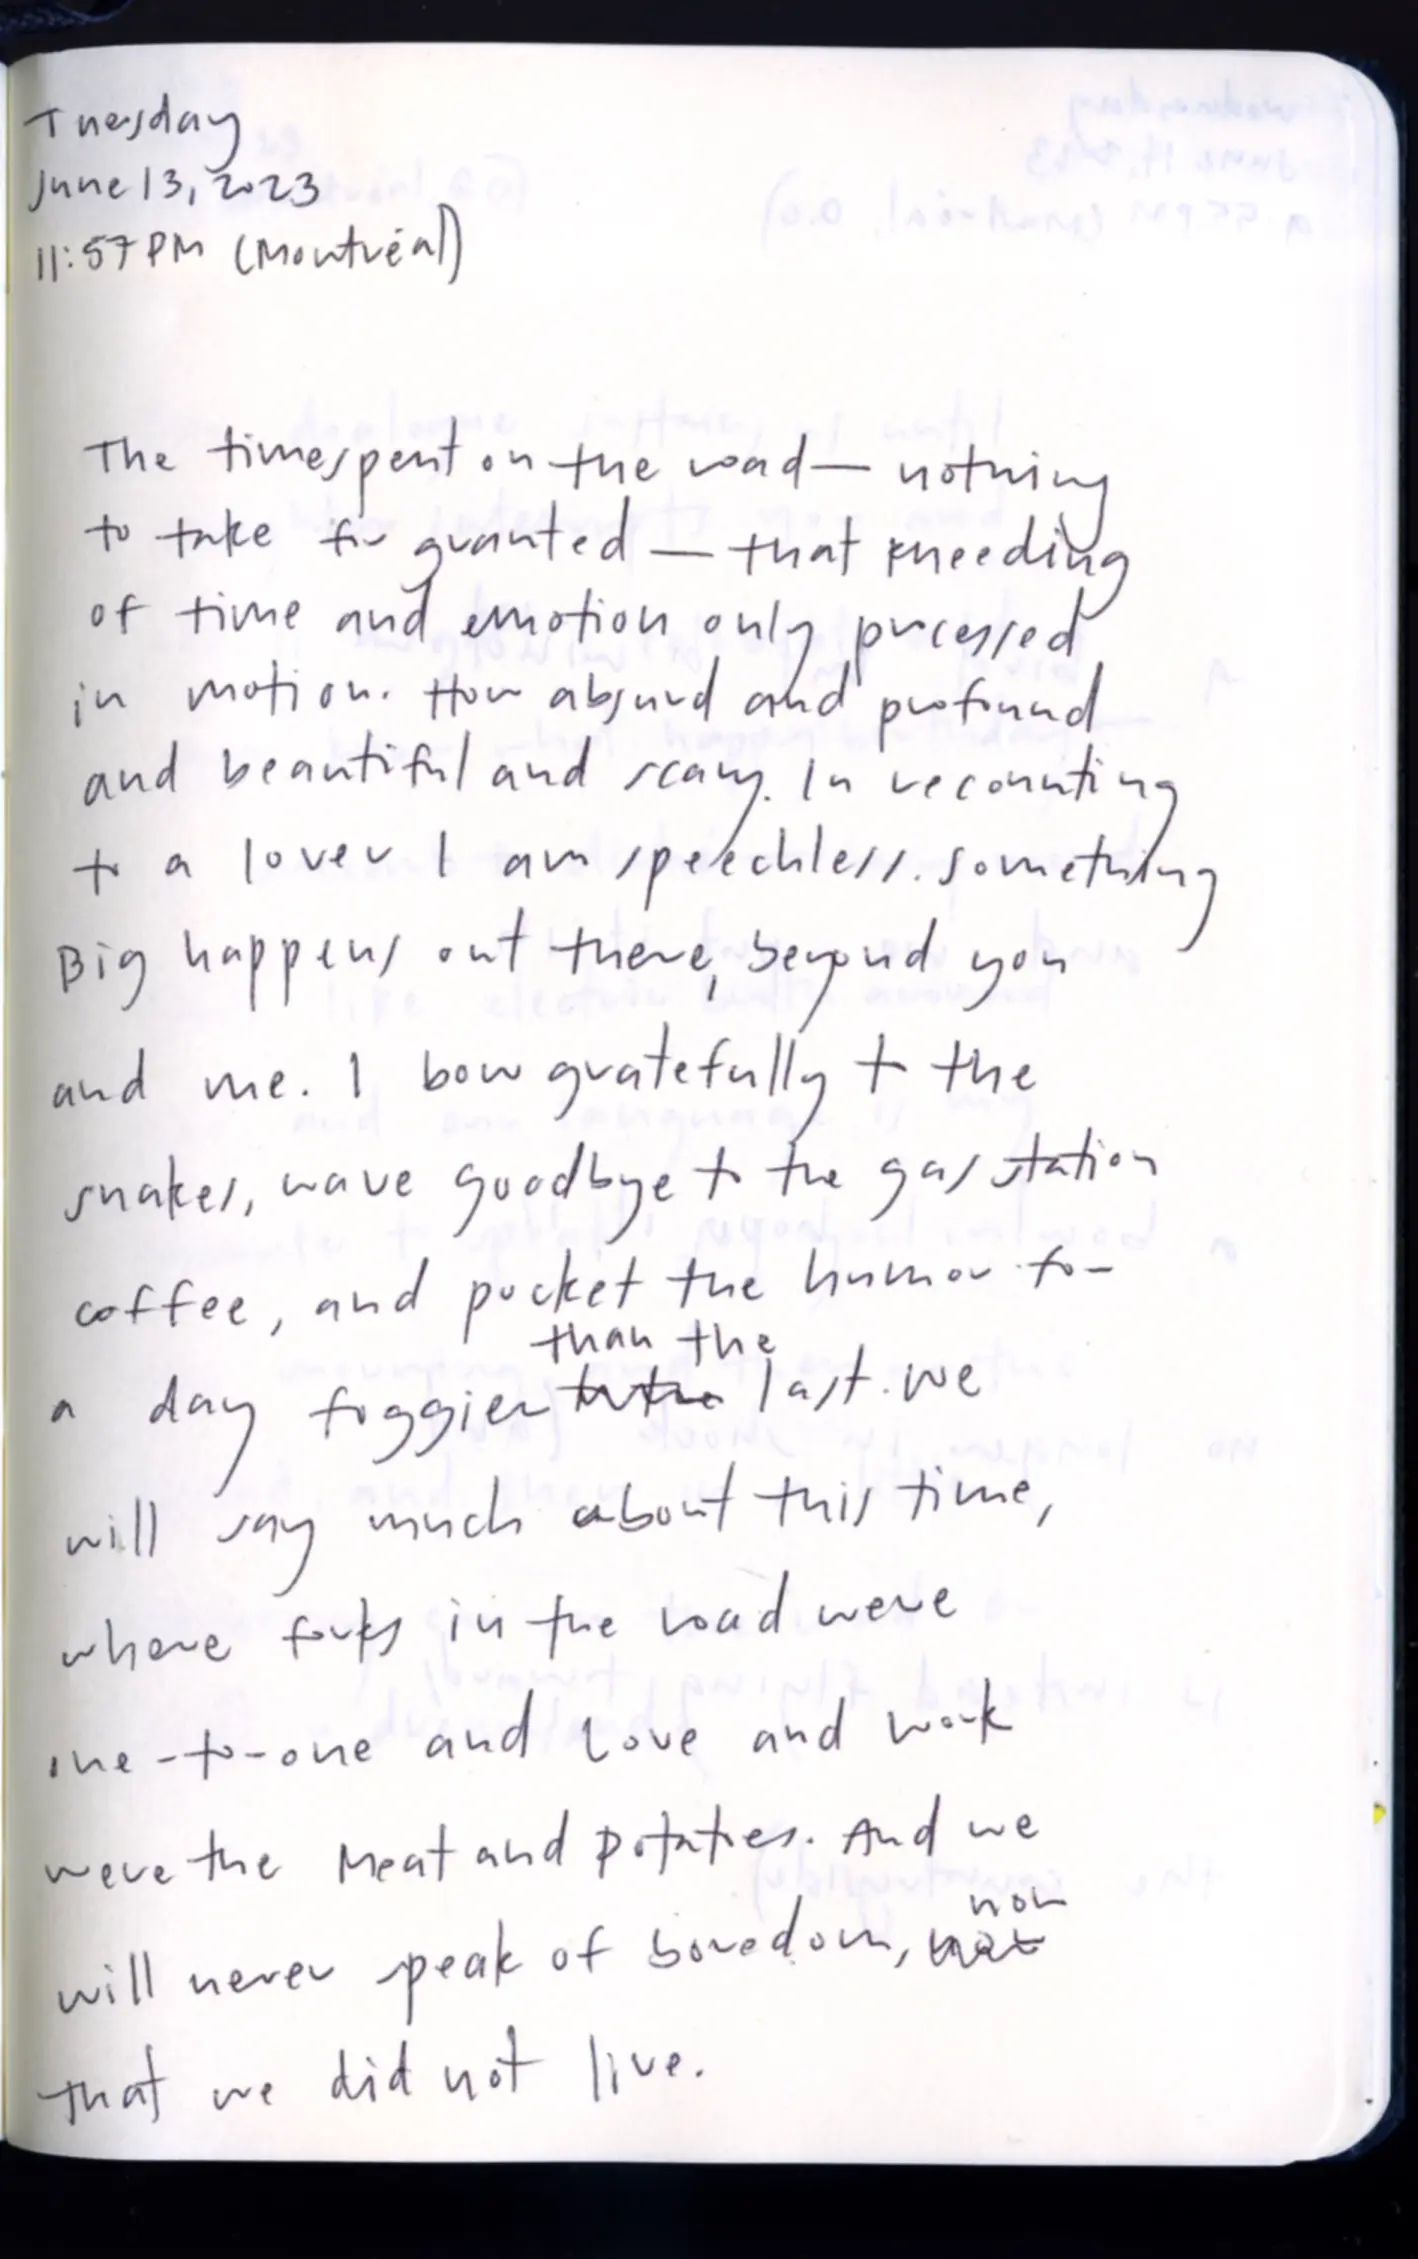 Tuesday
June 13, 2023
11:57 PM (Montréal)
The time spent on the road — nothing
to take for granted — that kneeding
of time and emotion only processed
in motion. How absurd and profound
and beautiful and scary. In recounting
to a lover I am speechless. Something
Big happens out there, beyond you
and me. I bow gratefully to the
snakes, wave goodbye to the gas station
coffee, and pocket the humor for
than the
a day foggier to the last. We
will say much about this time,
where forks in the road were
one-to-one and Love and work
were the Meat and Potatoes. And we
nor
will never speak of boredom, not
that we did not live.